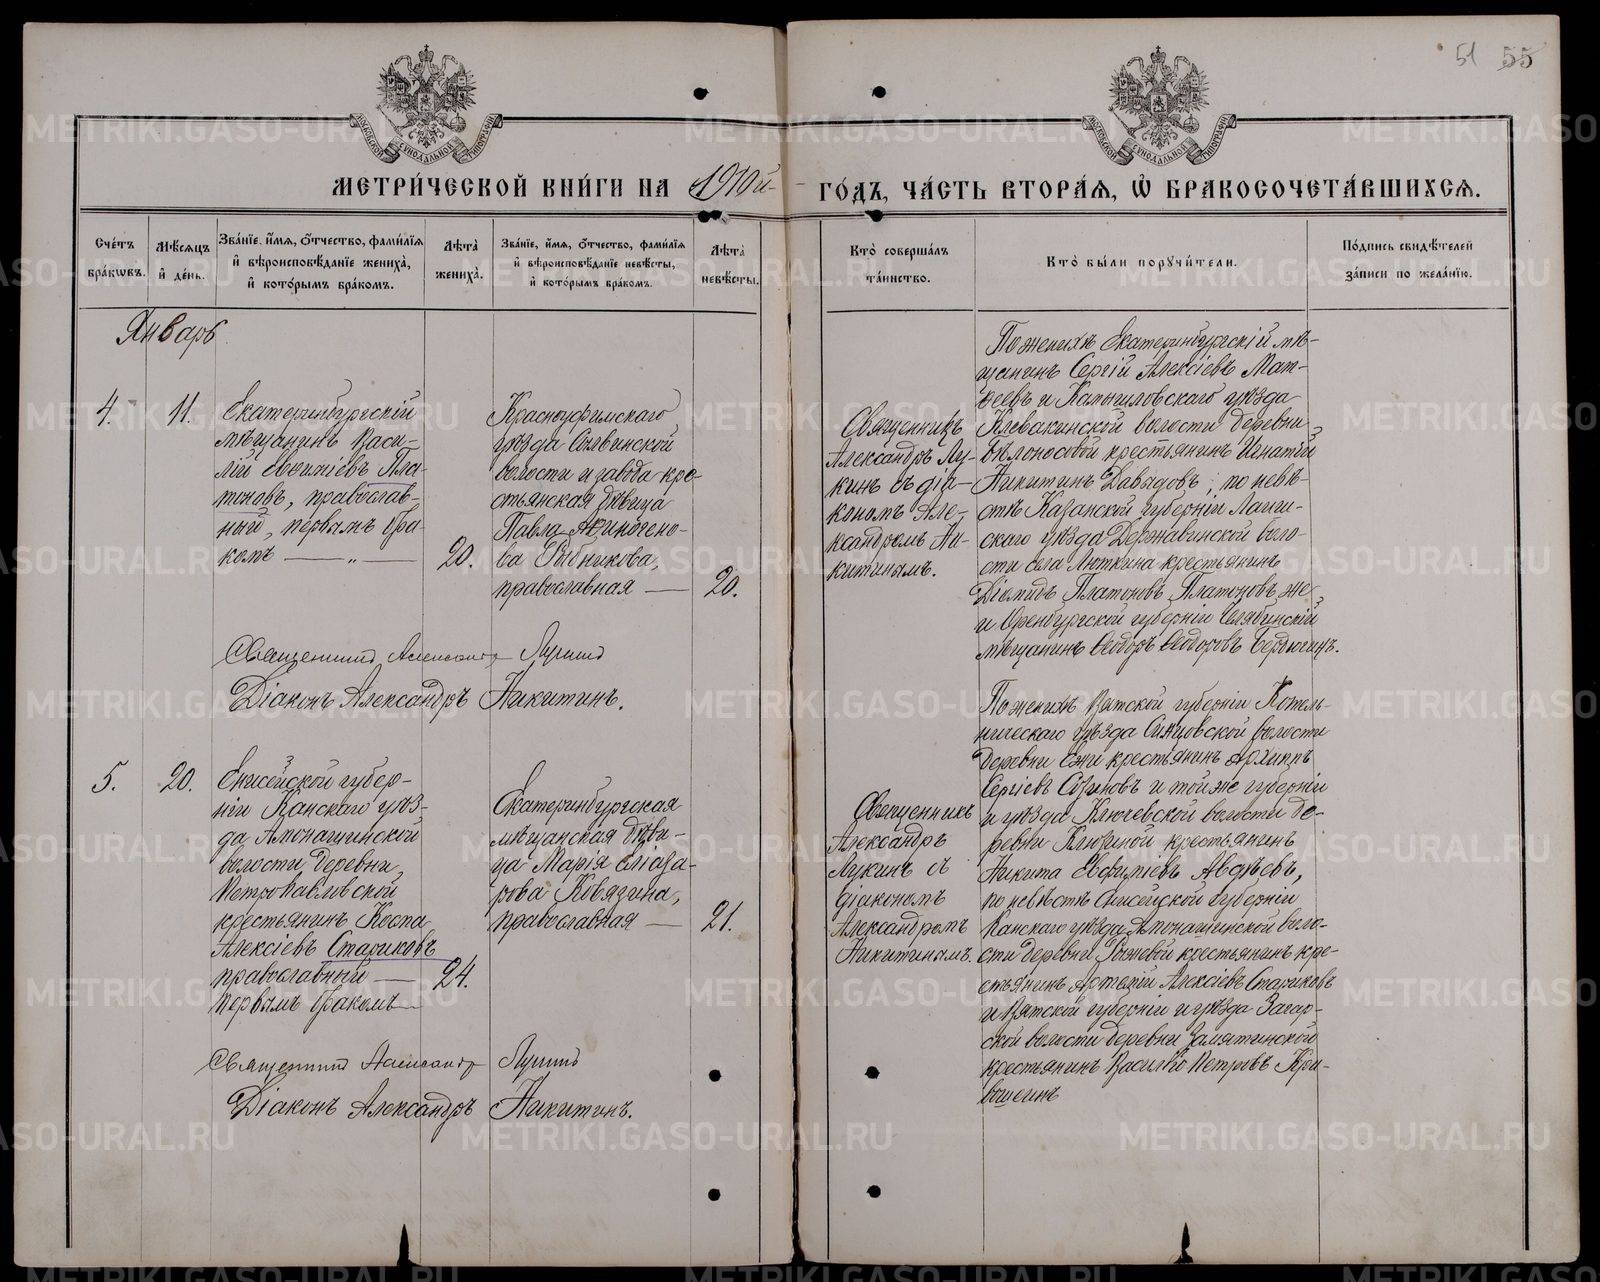 51 55
МОСКОВСКОЙ СѴНОДАЛЬНОЙ ТИПОГРАФІИ
МОСКОВСКОЙ СѴНОДАЛЬНОЙ ТИПОГРАФІИ
МЕТРИ́ЧЕСКОЙ КНИ́ГИ НА 1910й ГО́ДЪ, ЧА́СТЬ ВТОРА́Я, Ѽ БРАКОСОЧЕТА́ВШИХСЯ.
Сче́тъ
бра́кѡвъ.
Мѣ́сяцъ
и҆ де́нь.
Зва́нїе, и҆́мя, ѻ҆́тчество, фами́лїя
и҆ вѣроисповѣ́данїе жениха̀,
и҆ кото́рымъ бра́комъ.
Лѣ́та
жениха̀.
Зва́нїе, и҆́мя, ѻ҆́тчество, фами́лїя
и҆ вѣроисповѣ́данїе невѣ́сты,
и҆ кото́рымъ бра́комъ.
Лѣ́та
невѣ́сты.
Кто̀ соверша́лъ
та́инство.
Кто̀ бы́ли порꙋчи́тели.
По́дпись свидѣ́телей
за́писи по жела́нїю.
Январь
4.
11.
Екатеринбургскій
мѣщанинъ Васи-
лій Евѳиміевъ Пла-
тоновъ, православ-
ный, первымъ бра-
комъ — „ —
20.
Красноуфимскаго
уѣзда Сылвинской
волости и завода кре-
стьянская дѣвица
Павла
ва Рыбникова,
православная —
20.
Священникъ
Александръ Лу-
кинъ съ діа-
кономъ Але-
ксандромъ Ни-
китинымъ.
По женихѣ Екатеринбургскій мѣ-
щанинъ Сергій Алексіевъ Мат-
ѳеевъ и Камышловскаго уѣзда
Клевакинской волости деревни
Бѣлоносовой крестьянинъ Игнатій
Никитинъ Давыдовъ; по невѣ-
стѣ Казанской губерніи Лаиш-
скаго уѣзда Державинской воло-
сти села крестьянинъ
Діомидъ Платоновъ Платоновъ же
и Оренбургской губерніи Челябинскій
мѣщанинъ Ѳеодоръ Ѳеодоровъ Бердюгинъ.
Священникъ Александръ Лукинъ
Діаконъ Александръ Никитинъ.
5.
20.
Енисейской губер-
ніи Канскаго уѣз-
да Амонашинской
волости деревни
Петропавловской
крестьянинъ Косма
Алексіевъ Стариковъ
православный —
первымъ бракомъ —
24.
Екатеринбургская
мѣщанская дѣви-
ца Марія Еліаза-
рова Ковязина,
православная —
21.
Священникъ
Александръ
Лукинъ съ
діакономъ
Александромъ
Никитинымъ.
По женихѣ Вятской губерніи Котель-
ническаго уѣзда волости
деревни Ежи крестьянинъ Архиппъ
Сергіевъ и той же губерніи
и уѣзда Ключевской волости де-
ревни крестьянинъ
Никита Евфиміевъ Авдѣевъ,
по невѣстѣ Енисейской губерніи
Канскаго уѣзда Амонашинской воло-
сти деревни крестьянинъ кре-
стьянинъ Алексіевъ Стариковъ
и Вятской губерніи и уѣзда Загар-
ской волости деревни Замятинской
крестьянинъ Василій Петровъ Кри-
вошеинъ
Священникъ Александръ Лукинъ
Діаконъ Александръ Никитинъ.
METRIKI.GASO-URAL.RU